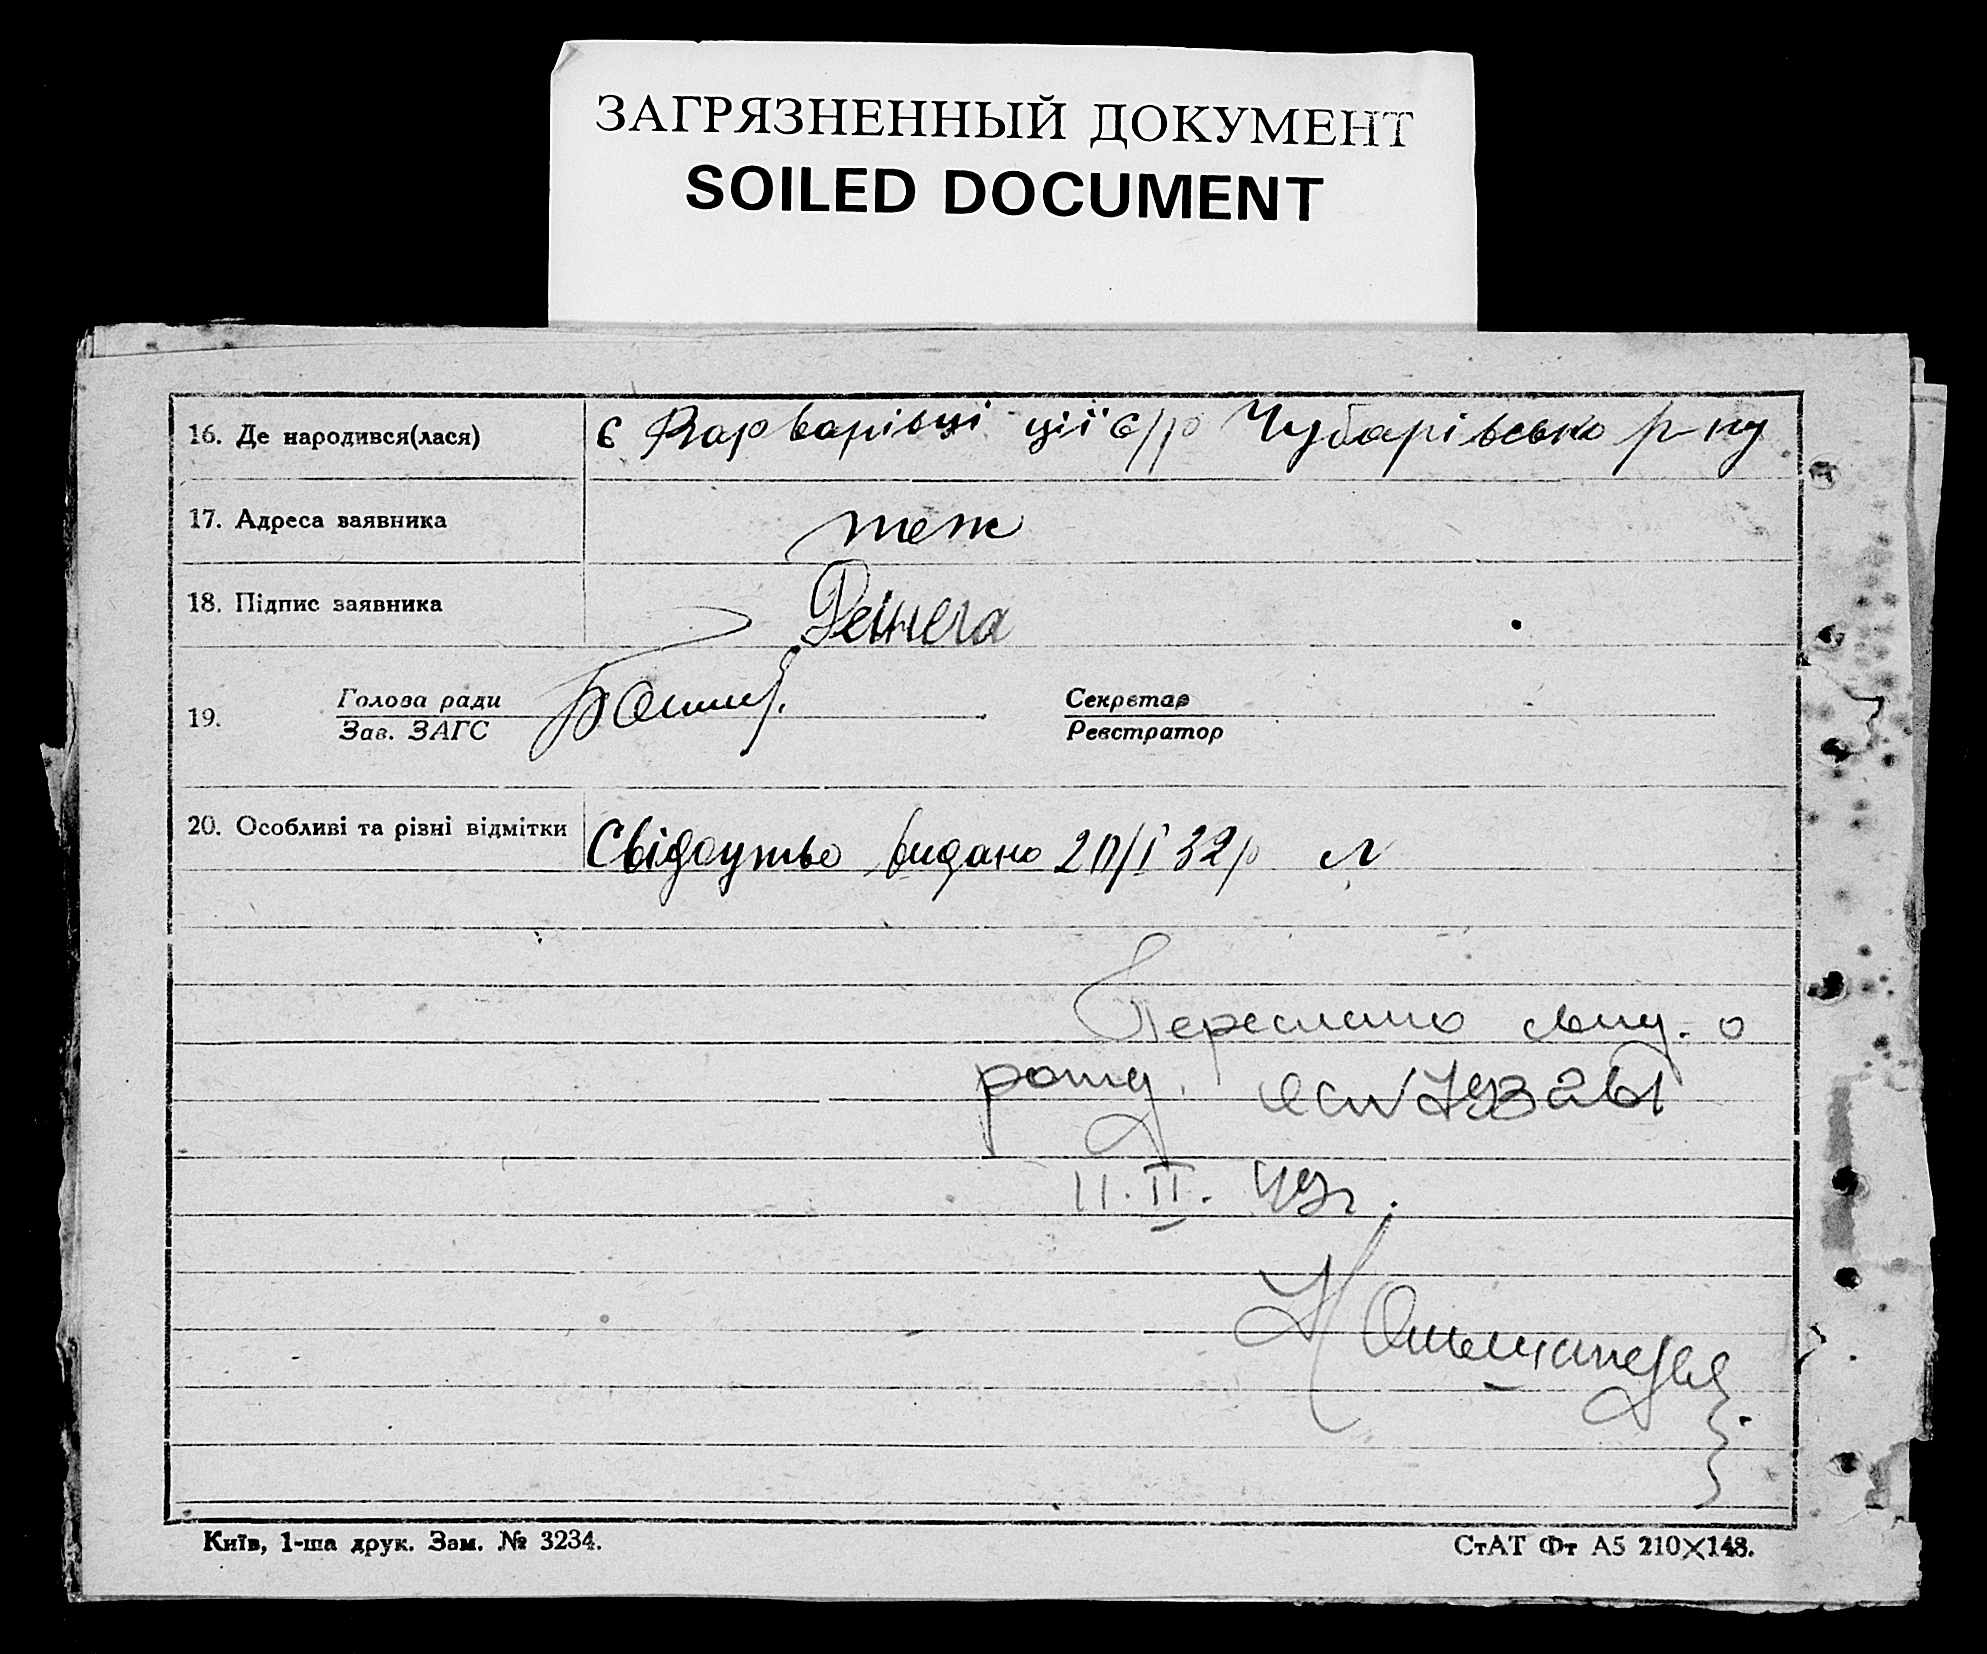 ЗАГРЯЗНЕННЫЙ ДОКУМЕНТ
SOILED DOCUMENT
16. Де народився(лася) с Варварівці ції с/р Чубарівсько р-ну
17. Адреса заявника теж
18. Підпис заявника
19. Голова ради
Зав. ЗАГС
Секретар
Реєстратор
20. Особливі та різні відмітки Свідоцтво видано 2П/І 32р
о
рожд.
11.II. 49г.
Київ, 1-ша друк. Зам. № 3234.
СтАТ Фт А5 210×148.